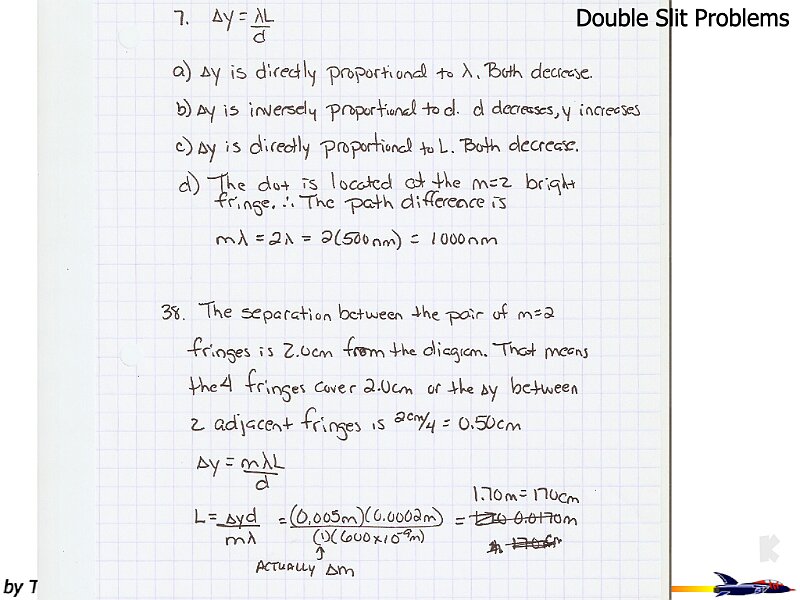 Double Slit Problems
7. Δy = λL/d
a) Δy is directly proportional to λ. Both decrease.
b) Δy is inversely proportional to d. d decreases, y increases
c) Δy is directly proportional to L. Both decrease.
d) The dot is located at the m=2 bright
fringe. ∴ The path difference is
mλ = 2λ = 2(500nm) = 1000nm
38. The separation between the pair of m=2
fringes is 2.0cm from the diagram. That means
the 4 fringes cover 2.0cm or the Δy between
2 adjacent fringes is 2cm/4 = 0.50cm
Δy = mλL/d
1.70m = 170cm
L = Δyd/mλ = (0.005m)(0.0002m)/(1)(600x10⁻⁹m) = 0.0170m
↑
ACTUALLY Δm
by T